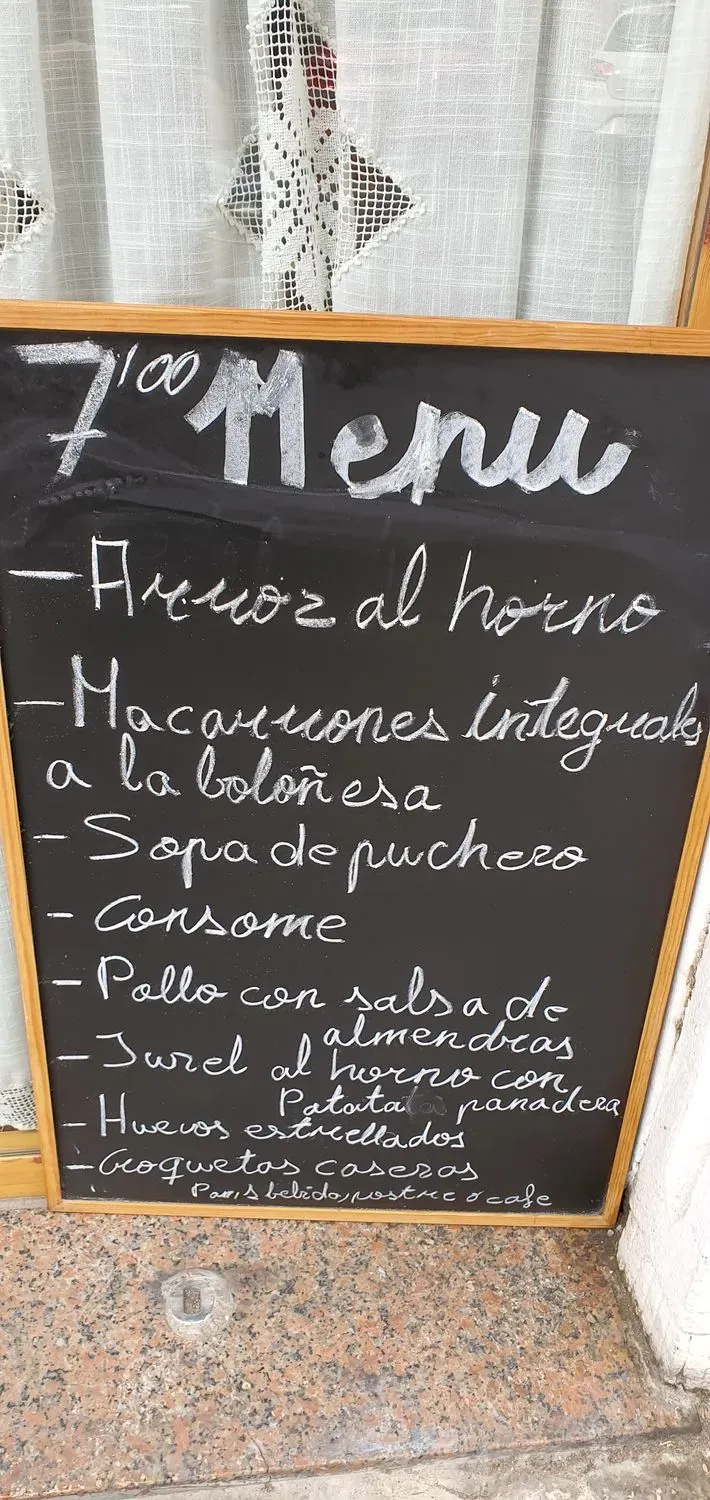 7'00 Menu
- Arroz al horno
- Macarrones integrales
a la boloñesa
- Sopa de puchero
- Consome
- Pollo con salsa de
almendras
- Jurel al horno con
Patata panadera
- Huevos estrellados
- Croquetas caseras
Pan, 1 bebida, postre o cafe